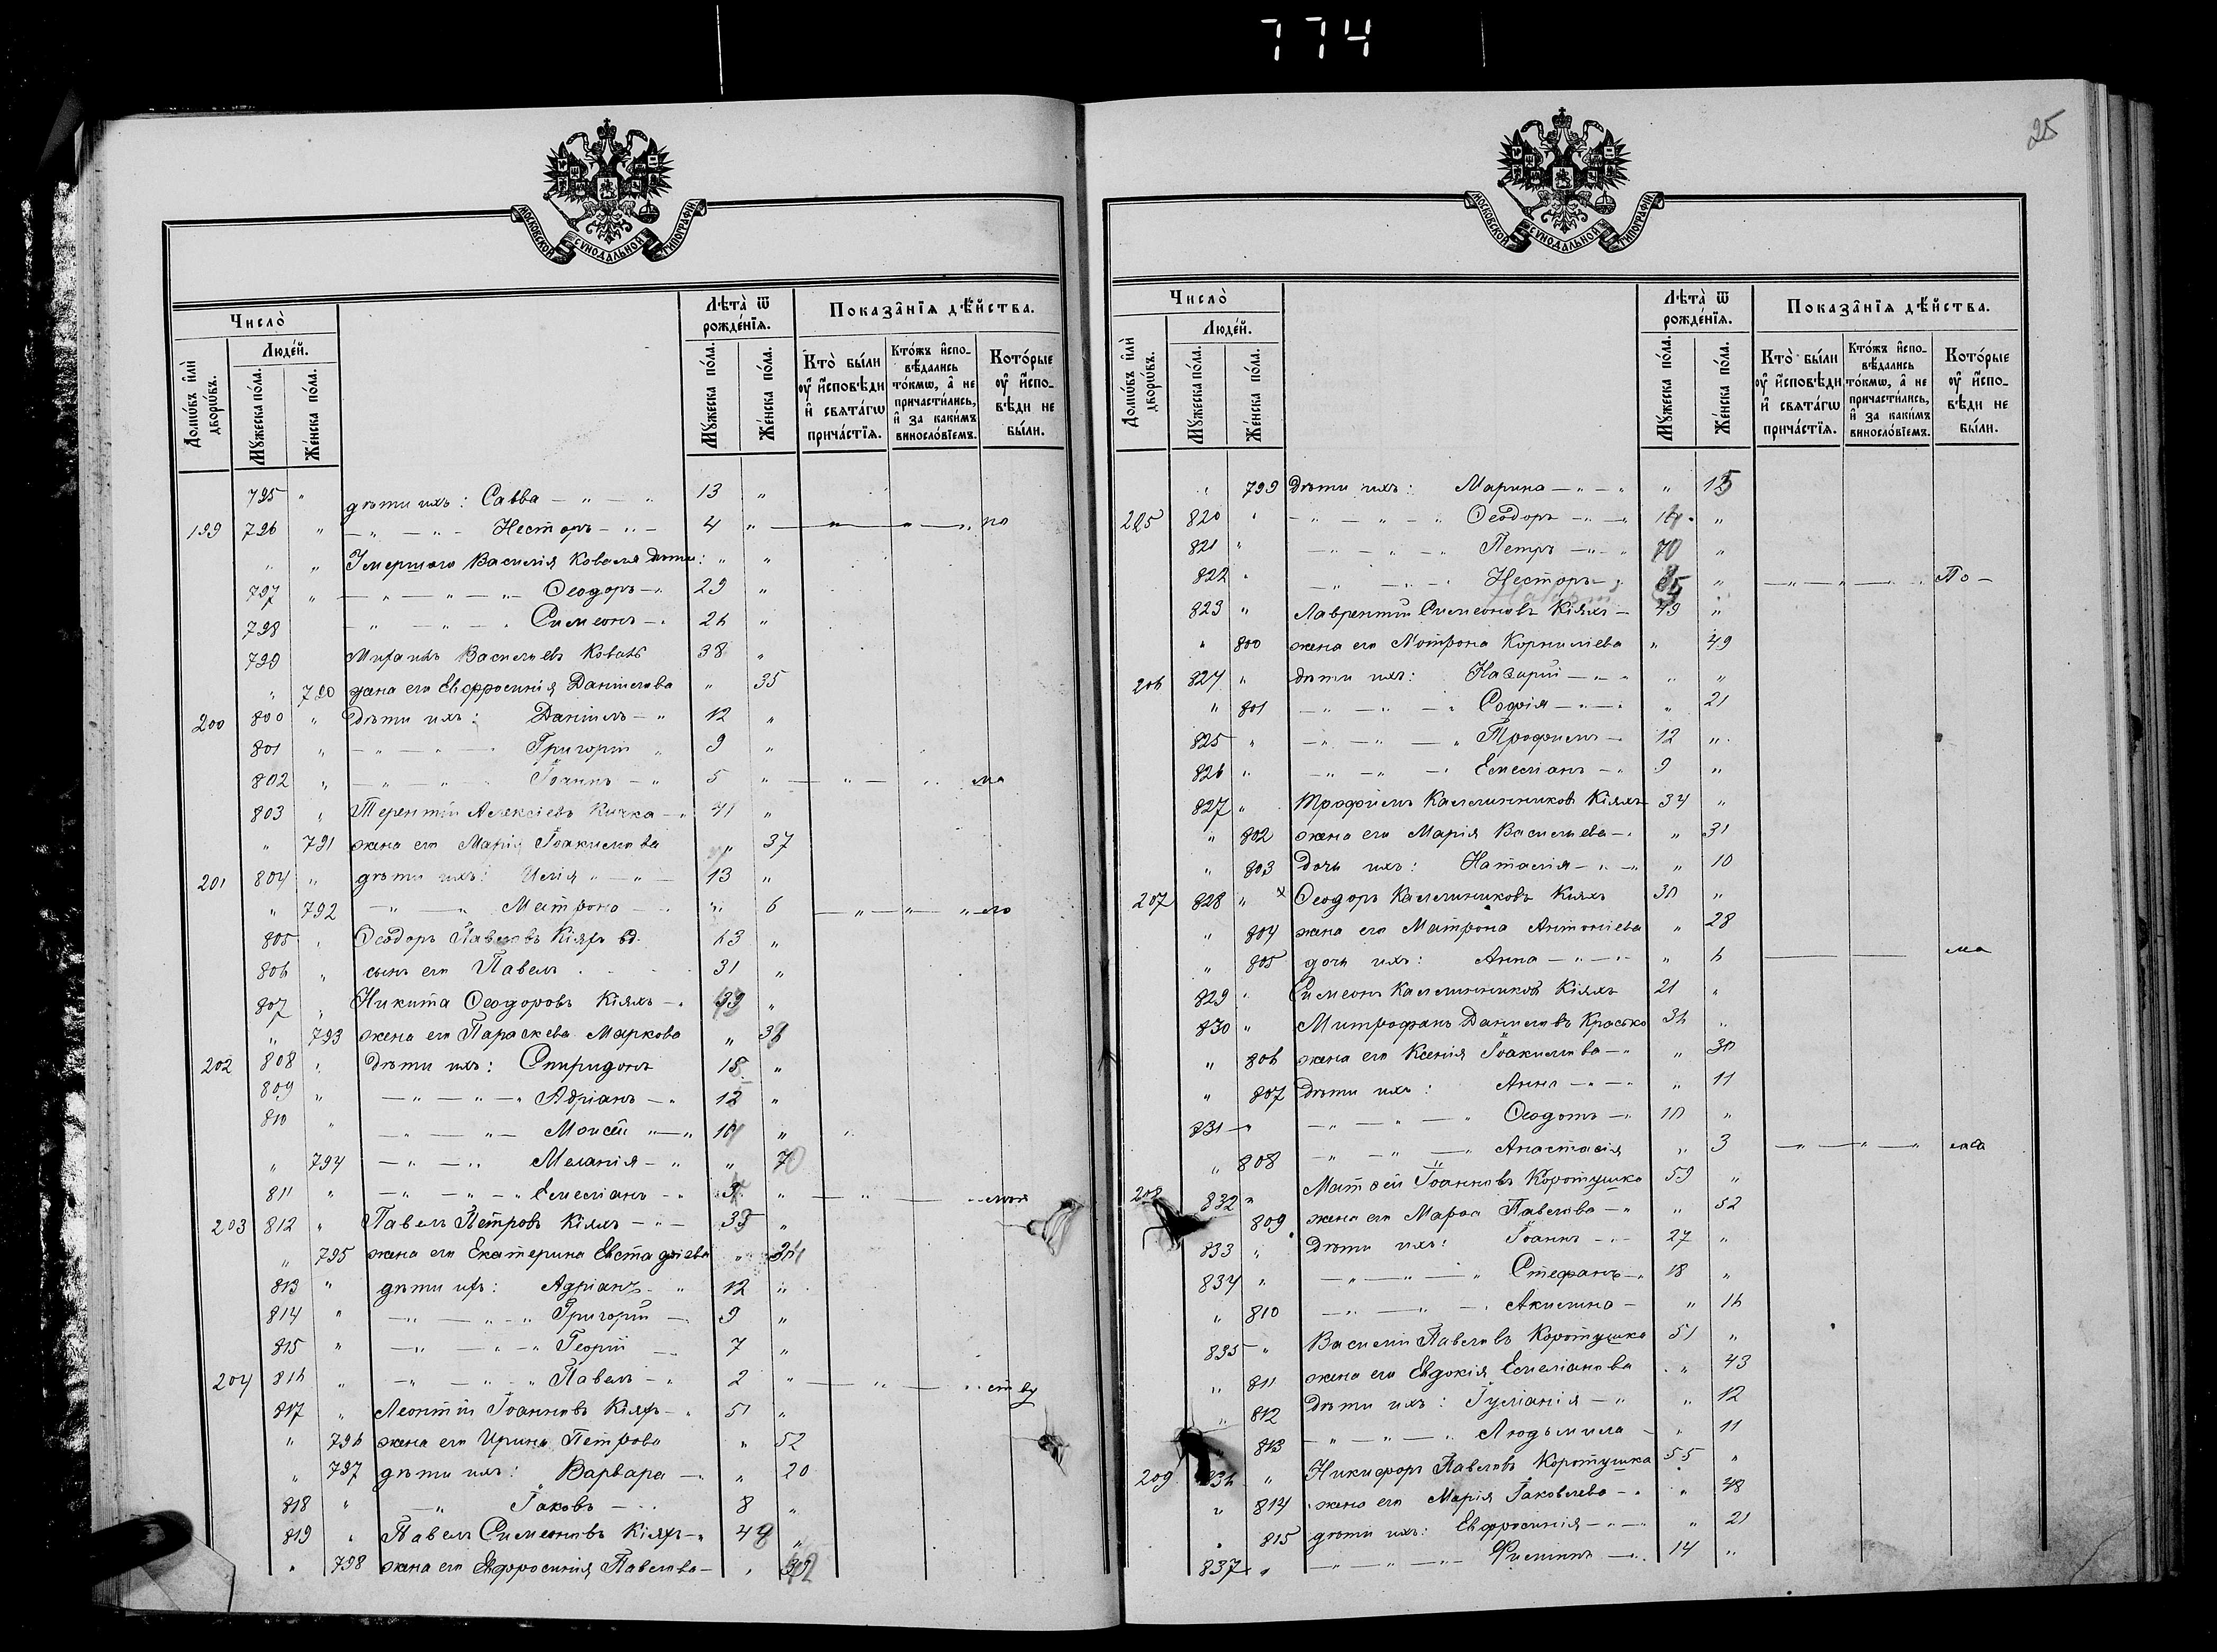 774
МОСКОВСКОЙ СУНОДАЛЬНОЙ ТИПОГРАФІИ.
Число̀
Лѣта̀ ѿ рожде́нїѧ.
Показа̑нїѧ дѣ́йства.
Домѡ́въ и҆лѝ дворѡ́въ.
Люде́й.
Мꙋ́жеска по́ла.
Же́нска по́ла.
Мꙋ́жеска по́ла.
Же́нска по́ла.
Кто̀ бы́ли ᲂу҆ и҆сповѣ́ди и҆ свѧта́гѡ прича́стїѧ.
Кто́жъ и҆спо-вѣ́дались то́кмѡ, а҆ не причасти́лись, и҆ за каки́мъ виносло́вїемъ.
Кото́рые ᲂу҆ и҆спо-вѣ́ди не бы́ли.
795 " дѣти ихъ: Савва — " — " 13 "
199 796 " — " — " — Несторъ — " — 4 " — " — " — " по
" " Умершаго Василія Коваля дѣти: " "
797 " — " — " — " — Ѳеодоръ — " 29 "
798 — " — " — " Симеонъ — " 26 "
799 Михаилъ Васильевъ Коваль 38 "
" 790 жена его Евфросинія Даніилова " 35
200 800 " Дѣти ихъ: Даніилъ — " 12 "
801 " — " — " — " Григорій " 9 "
802 " — " — " Іоаннъ — " 5 " — " — " ма
803 " Терентій Алексіевъ Кичка — " 41 "
" 791 жена его Марія Іоакимова " 37
201 804 " дѣти ихъ: Илія " — " — 13 "
" 792 — " — " Матрона — " 6 — " — " — " ло
805 " Ѳеодоръ Павловъ Кіяхъ вд. 63 "
806 " сынъ его Павелъ 31 "
807 " Никита Ѳеодоровъ Кіяхъ — " 39 "
" 793 жена его Параскева Маркова " 38
202 808 " Дѣти ихъ: Спиридонъ 15 "
809 " — " — " — " Адріанъ — " 12 "
810 " — " — " — Моисей " — " 10 "
" 794 — " — " Меланія — " " 7
811 " — " — " — " Емеліанъ — " 3 " — " — "
203 812 " Павелъ Петровъ Кіяхъ — " — 35 "
" 795 жена его Екатерина Евстафіева " 34
813 " дѣти ихъ: Адріанъ — " 12 "
814 " — " — " — " Григорій — 9 "
815 " — " — " — " Георгій — 7 "
204 816 " — " — " — " Павелъ — " 2 " — " — " ству
817 " Леонтій Іоанновъ Кіяхъ — " 51 "
" 796 жена его Ирина Петрова " 52
" 797 дѣти ихъ: Варвара — " " 20
818 " — " Іаковъ — " 8 "
819 " Павелъ Симеоновъ Кіяхъ — " 48 "
" 798 жена его Евфросинія Павлова — "
25
МОСКОВСКОЙ СУНОДАЛЬНОЙ ТИПОГРАФІИ.
Число̀
Лѣта̀ ѿ рожде́нїѧ.
Показа̑нїѧ дѣ́йства.
Домѡ́въ и҆лѝ дворѡ́въ.
Люде́й.
Мꙋ́жеска по́ла.
Же́нска по́ла.
Мꙋ́жеска по́ла.
Же́нска по́ла.
Кто̀ бы́ли ᲂу҆ и҆сповѣ́ди и҆ свѧта́гѡ прича́стїѧ.
Кто́жъ и҆спо-вѣ́дались то́кмѡ, а҆ не причасти́лись, и҆ за каки́мъ виносло́вїемъ.
Кото́рые ᲂу҆ и҆спо-вѣ́ди не бы́ли.
" 799 Дѣти ихъ: Марина — " — " " 15
205 820 " — " — " — " Ѳеодоръ — " — " 14 "
821 " — " — " — " Петръ — " — " "
822 " — " — " — " Несторъ — " " — " — " — По —
Назарій
823 " Лаврентій Симеоновъ Кіяхъ — 49 "
" 800 жена его Мотрона Корниліева " 49
206 824 " дѣти ихъ: Назарій — " — " " "
" 801 — " — " — " Софія — " — " " 21
825 " — " — " — " Трофимъ — 12 "
826 " — " — " — " Емеліанъ — " 9 "
827 " Трофимъ Каллиниковъ Кіяхъ 34 "
" 802 жена его Марія Васильева — " " 31
" 803 Дочь ихъ: Наталія — " — " " 10
207 828 " × Ѳеодоръ Каллиниковъ Кіяхъ 30 "
" 804 жена его Матрона Антоніева " 28
" 805 дочь ихъ: Анна — " — " " 6 — — ма
829 " Симеонъ Каллиниковъ Кіяхъ 21 "
830 " Митрофанъ Даниловъ Красько 36 "
" 806 жена его Ксенія Іоакимова — " " 30
" 807 Дѣти ихъ: Анна — " — " " 11
831 — " — " — " — " Ѳеодотъ — " 10 "
" 808 — " — " — " Анастасія " 3 — " — " — "
208 832 " Матѳей Іоанновъ Коротушко 59 "
809 жена его Марѳа Павлова — " " 52
833 " Дѣти ихъ: Іоаннъ — " — 27 "
834 " — " — " — " Стефанъ — " 18 "
" 810 — " — " — " Акилина — " 16
835 " Василій Павловъ Коротушко 51 "
" 811 жена его Евдокія Емеліанова " 43
" 812 Дѣти ихъ: Іуліанія — " " 12
813 — " — " — " Людьмила — " 11
209 836 " Никифоръ Павловъ Коротушка 55 "
" 814 жена его Марія Іаковлева — " " 48
" 815 дѣти ихъ: Евфросинія — " — " " 21
837 " — " — " — " Филиппъ — " 14 "